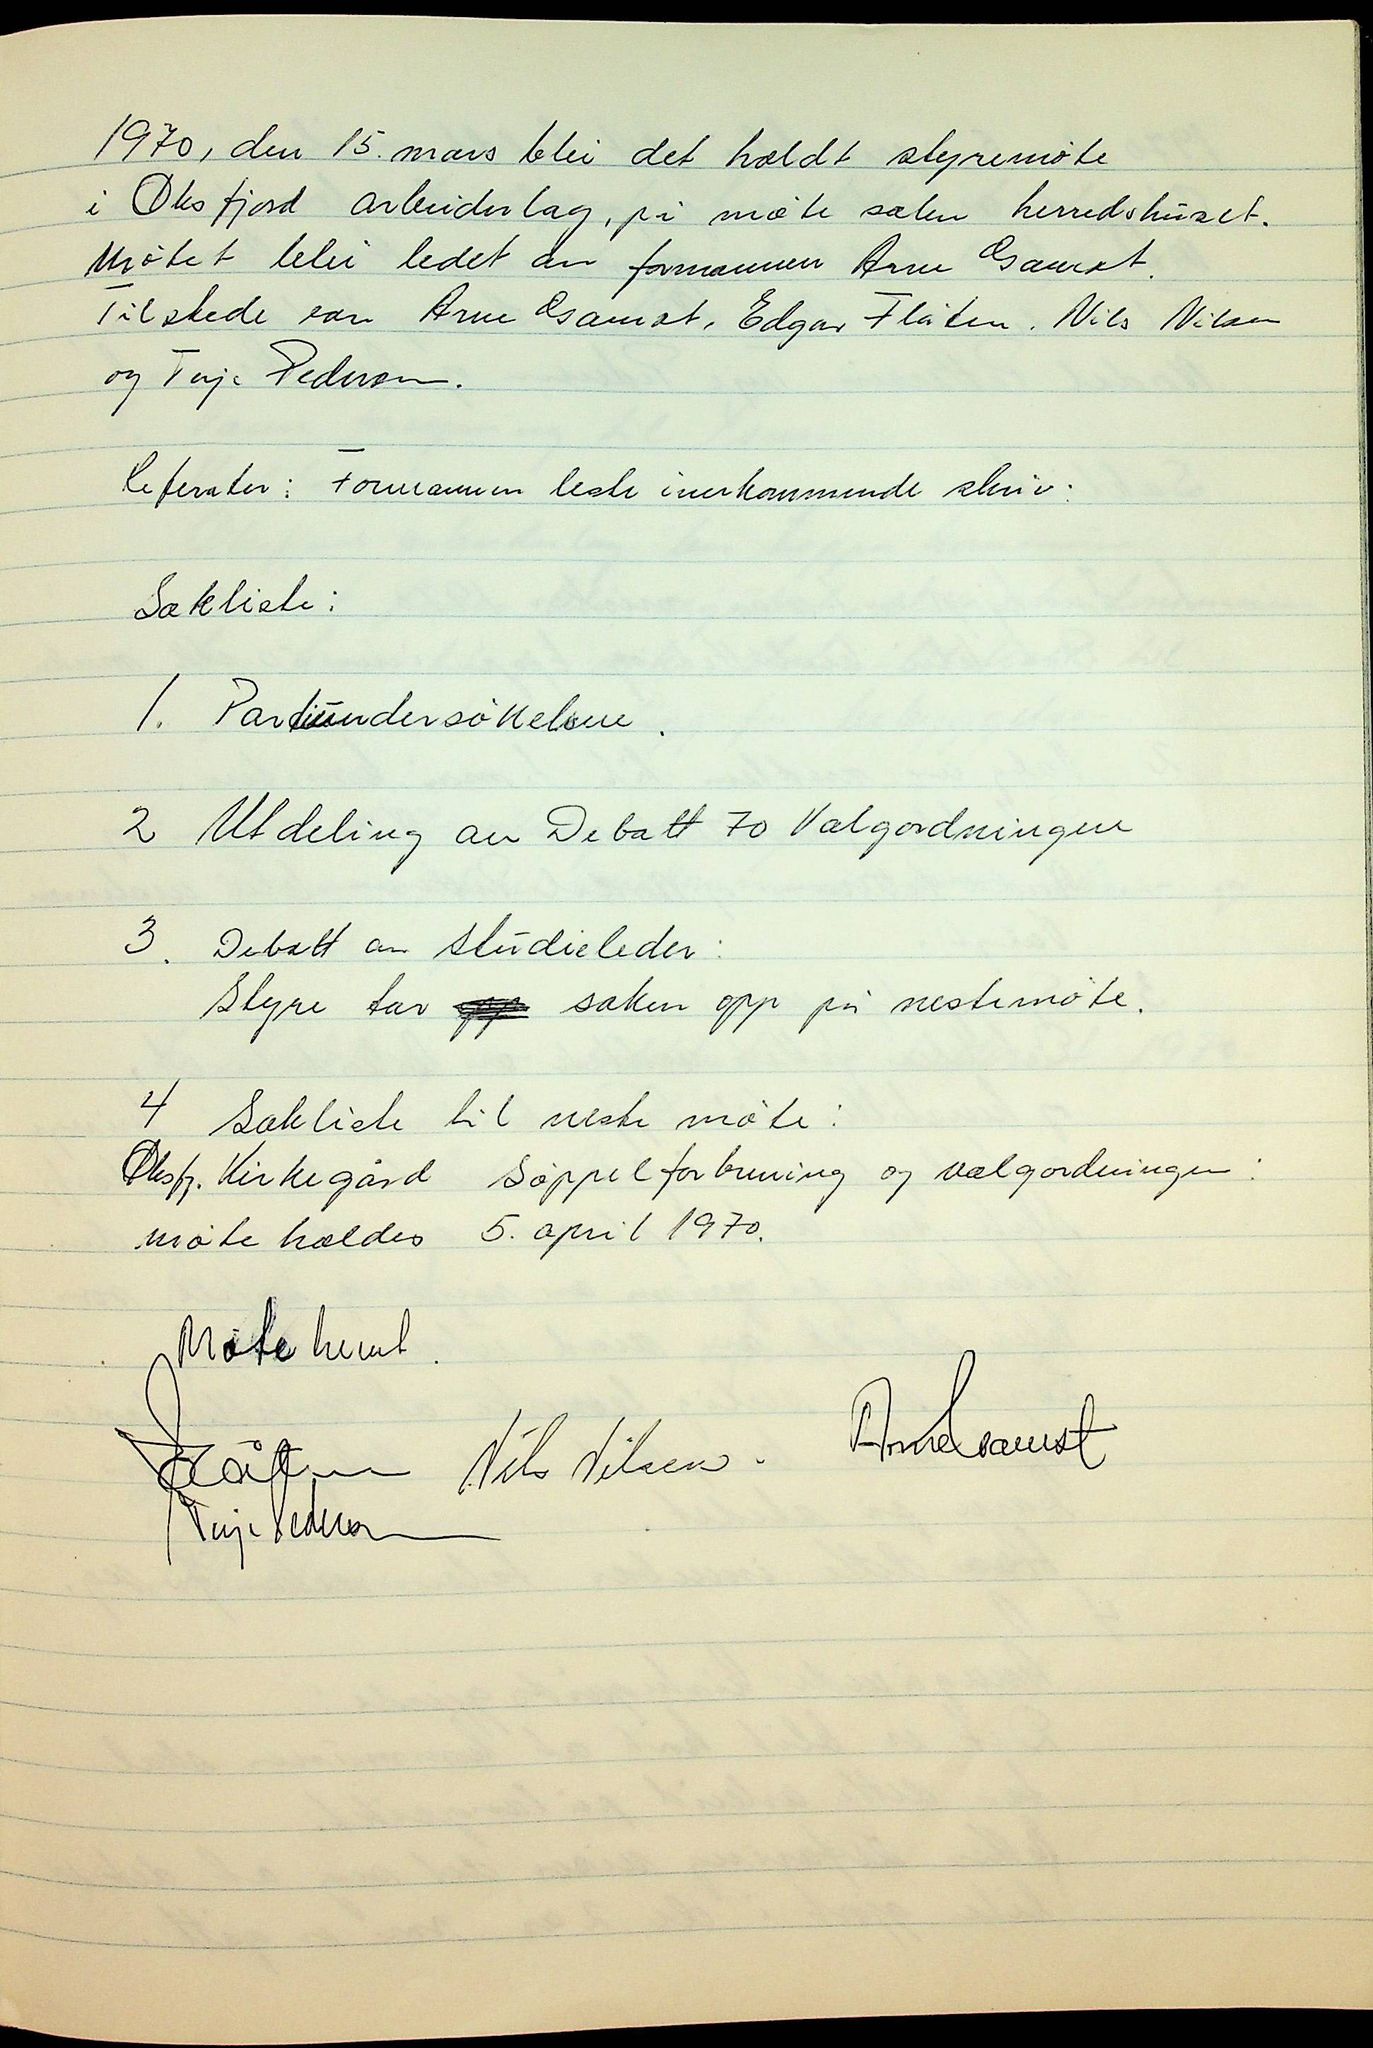 1970, den 15. mars blei det holdt styremöte
i Øksfjord arbeiderlag, på möte salen herredshuset.
Mötet blei ledet av formannen Arne Isaurst.
Tilstede var Arne Isaurst. Edgar Flåten. Nils Nilsen
og Terje Pedersen.
Referater: Formannen leste innkommende skriv:
Sakliste:
1. Partiundersökelsene.
2 Utdeling av Debatt 70 Valgordningen
3. Debatt om studieleder:
Styre tar saken opp på nestemöte.
4 Sakliste til neste möte:
Øksfj. Kirkegård Söppelforbrening og valgordningen:
möte holdes 5. april 1970.
Möte hevet.
Flåten Nils Nilsen. Arne Isaurst
Terje Pedersen